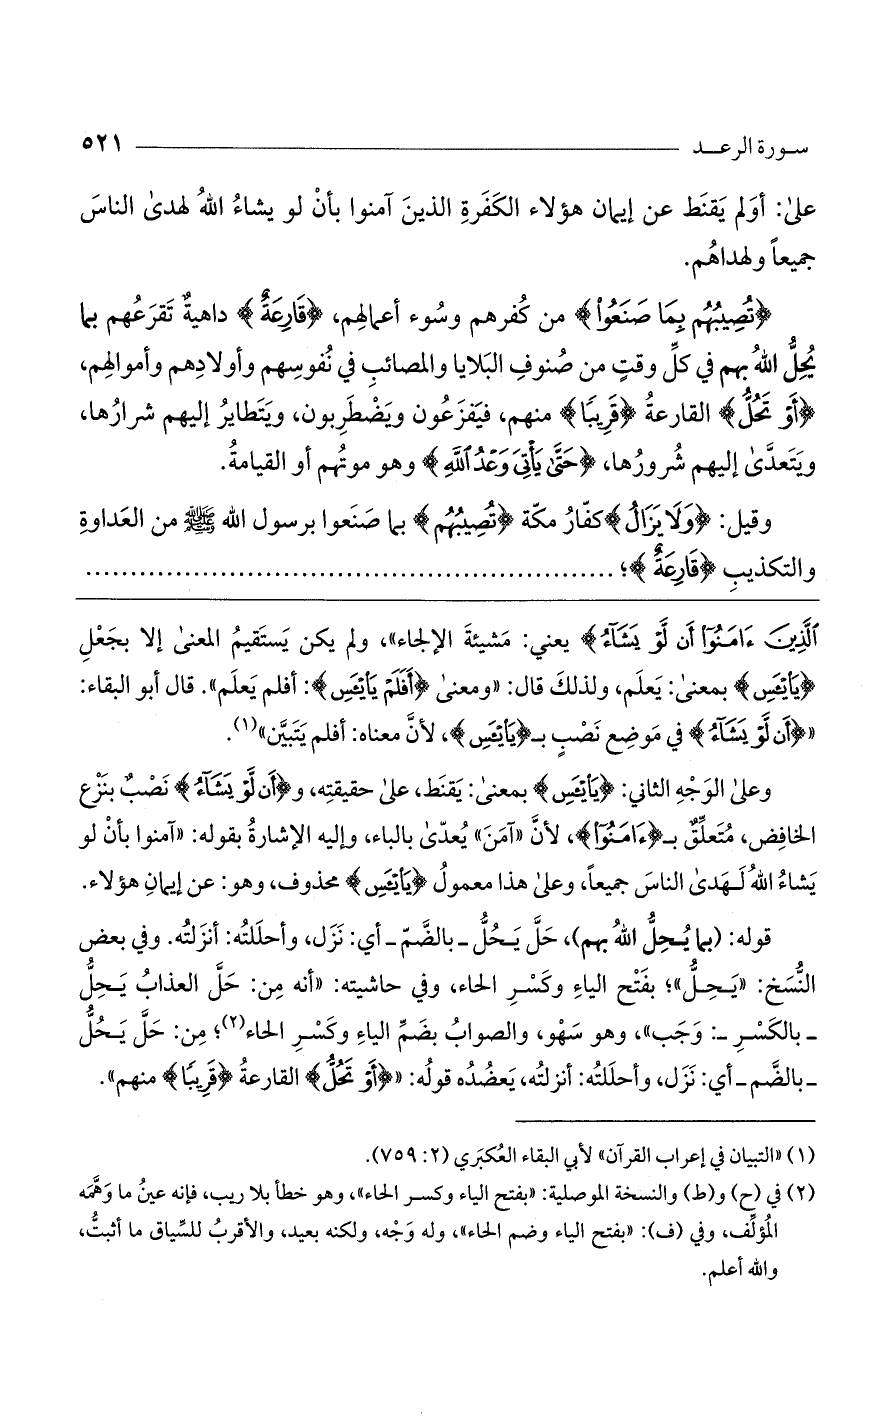 سـورة الرعـــد ٥٢١
علىٰ: أوَلم يَقنَط عن إيمان هؤلاء الكَفَرةِ الذينَ آمنوا بأنْ لو يشاءُ اللهُ لهدىٰ الناسَ
جميعاً ولهداهُم.
﴿تُصِيبُهُم بِمَا صَنَعُوا۟﴾ من كُفرهم وسُوء أعمالهِم، ﴿قَارِعَةٌ﴾ داهيةٌ تَقرَعُهم بما
يُحِلُّ اللهُ بهم في كلِّ وقتٍ من صُنوفِ البَلايا والمصائبِ في نُفوسِهم وأولادِهم وأموالهِم،
﴿أَوْ تَحُلُّ﴾ القارعةُ ﴿قَرِيبًا﴾ منهم، فيَفزَعُون ويَضْطَرِبون، ويَتَطايرُ إليهم شرارُها،
ويَتَعدَّىٰ إليهم شُرورُها، ﴿حَتَّىٰ يَأْتِىَ وَعْدُ ٱللَّهِ﴾ وهو موتُهم أو القيامةُ.
وقيل: ﴿وَلَا يَزَالُ﴾ كفّارُ مكّة ﴿تُصِيبُهُم﴾ بما صَنَعوا برسول الله ﷺ من العَداوةِ
والتكذيبِ ﴿قَارِعَةٌ﴾؛ ..........................................................
ٱلَّذِينَ ءَامَنُوٓا۟ أَن لَّوْ يَشَآءُ﴾ يعني: مَشيئةَ الإلجاء»، ولم يكن يَستَقيمُ المعنىٰ إلا بجَعْلِ
﴿يَا۟يْـَٔسِ﴾ بمعنىٰ: يَعلَم، ولذلكَ قال: «ومعنىٰ ﴿أَفَلَمْ يَا۟يْـَٔسِ﴾: أفلم يَعلَم». قال أبو البقاء:
«﴿أَن لَّوْ يَشَآءُ﴾ في مَوضِع نَصْبٍ بـ﴿يَا۟يْـَٔسِ﴾، لأنَّ معناه: أفلم يَتبيَّن»(١).
وعلىٰ الوَجْهِ الثاني: ﴿يَا۟يْـَٔسِ﴾ بمعنىٰ: يَقنَط، علىٰ حقيقتِه، و﴿أَن لَّوْ يَشَآءُ﴾ نَصْبٌ بنَزْعِ
الخافِض، مُتَعلِّقٌ بـ﴿ءَامَنُوٓا۟﴾، لأنَّ «آمَنَ» يُعدّىٰ بالباء، وإليه الإشارةُ بقوله: «آمنوا بأنْ لو
يَشاءُ اللهُ لَـهَدىٰ الناسَ جميعاً، وعلىٰ هذا معمولُ ﴿يَا۟يْـَٔسِ﴾ محذوف، وهو: عن إيمانِ هؤلاء.
قوله: (بما يُـحِلُّ اللهُ بهم)، حَلَّ يَـحُلُّ ـ بالضَّمّ ـ أي: نَزَل، وأحلَلتُه: أنزَلتُه. وفي بعض
النُّسَخ: «يَـحِـلُّ»؛ بفَتْح الياءِ وكَسْرِ الحاء، وفي حاشيته: «أنه مِن: حَلَّ العذابُ يَـحِلُّ
ـ بالكَسْرِ ـ: وَجَب»، وهو سَهْو، والصوابُ بضَمِّ الياءِ وكَسْرِ الحاء(٢)؛ مِن: حَلَّ يَـحُلُّ
ـ بالضَّم ـ أي: نَزَل، وأحلَلتُه: أنزلتُه، يَعضُدُه قولُه: «﴿أَوْ تَحُلُّ﴾ القارعةُ ﴿قَرِيبًا﴾ منهم».
(١) «التبيان في إعراب القرآن» لأبي البقاء العُكبَري (٢: ٧٥٩).
(٢) في (ح) و(ط) والنسخة الموصلية: «بفتح الياء وكسر الحاء»، وهو خطأ بلا ريب، فإنه عينُ ما وَهَّمَه
المُؤلِّف، وفي (ف): «بفتح الياء وضم الحاء»، وله وَجْه، ولكنه بعيد، والأقربُ للسِّياق ما أثبتُّ،
والله أعلم.